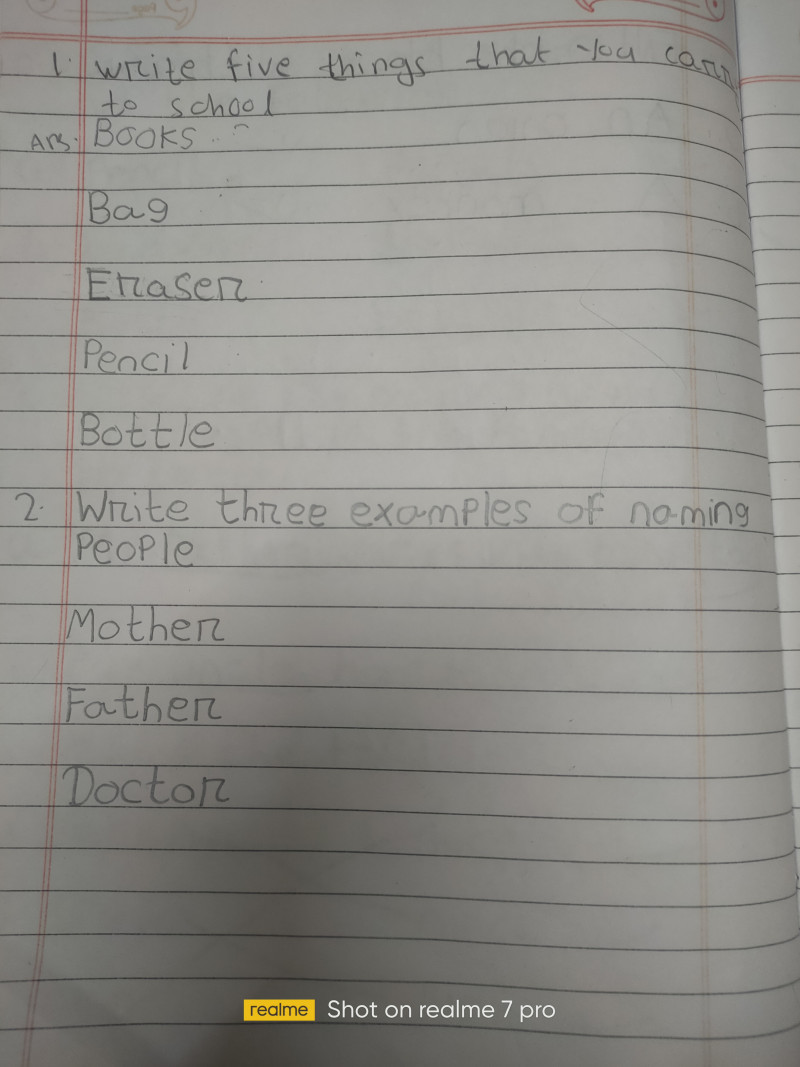 1. Write five things that You carr
to school
Ans. Books
Bag
Eraser
Pencil
Bottle
2. Write three examples of naming
People
Mother
Father
Doctor
realme Shot on realme 7 pro